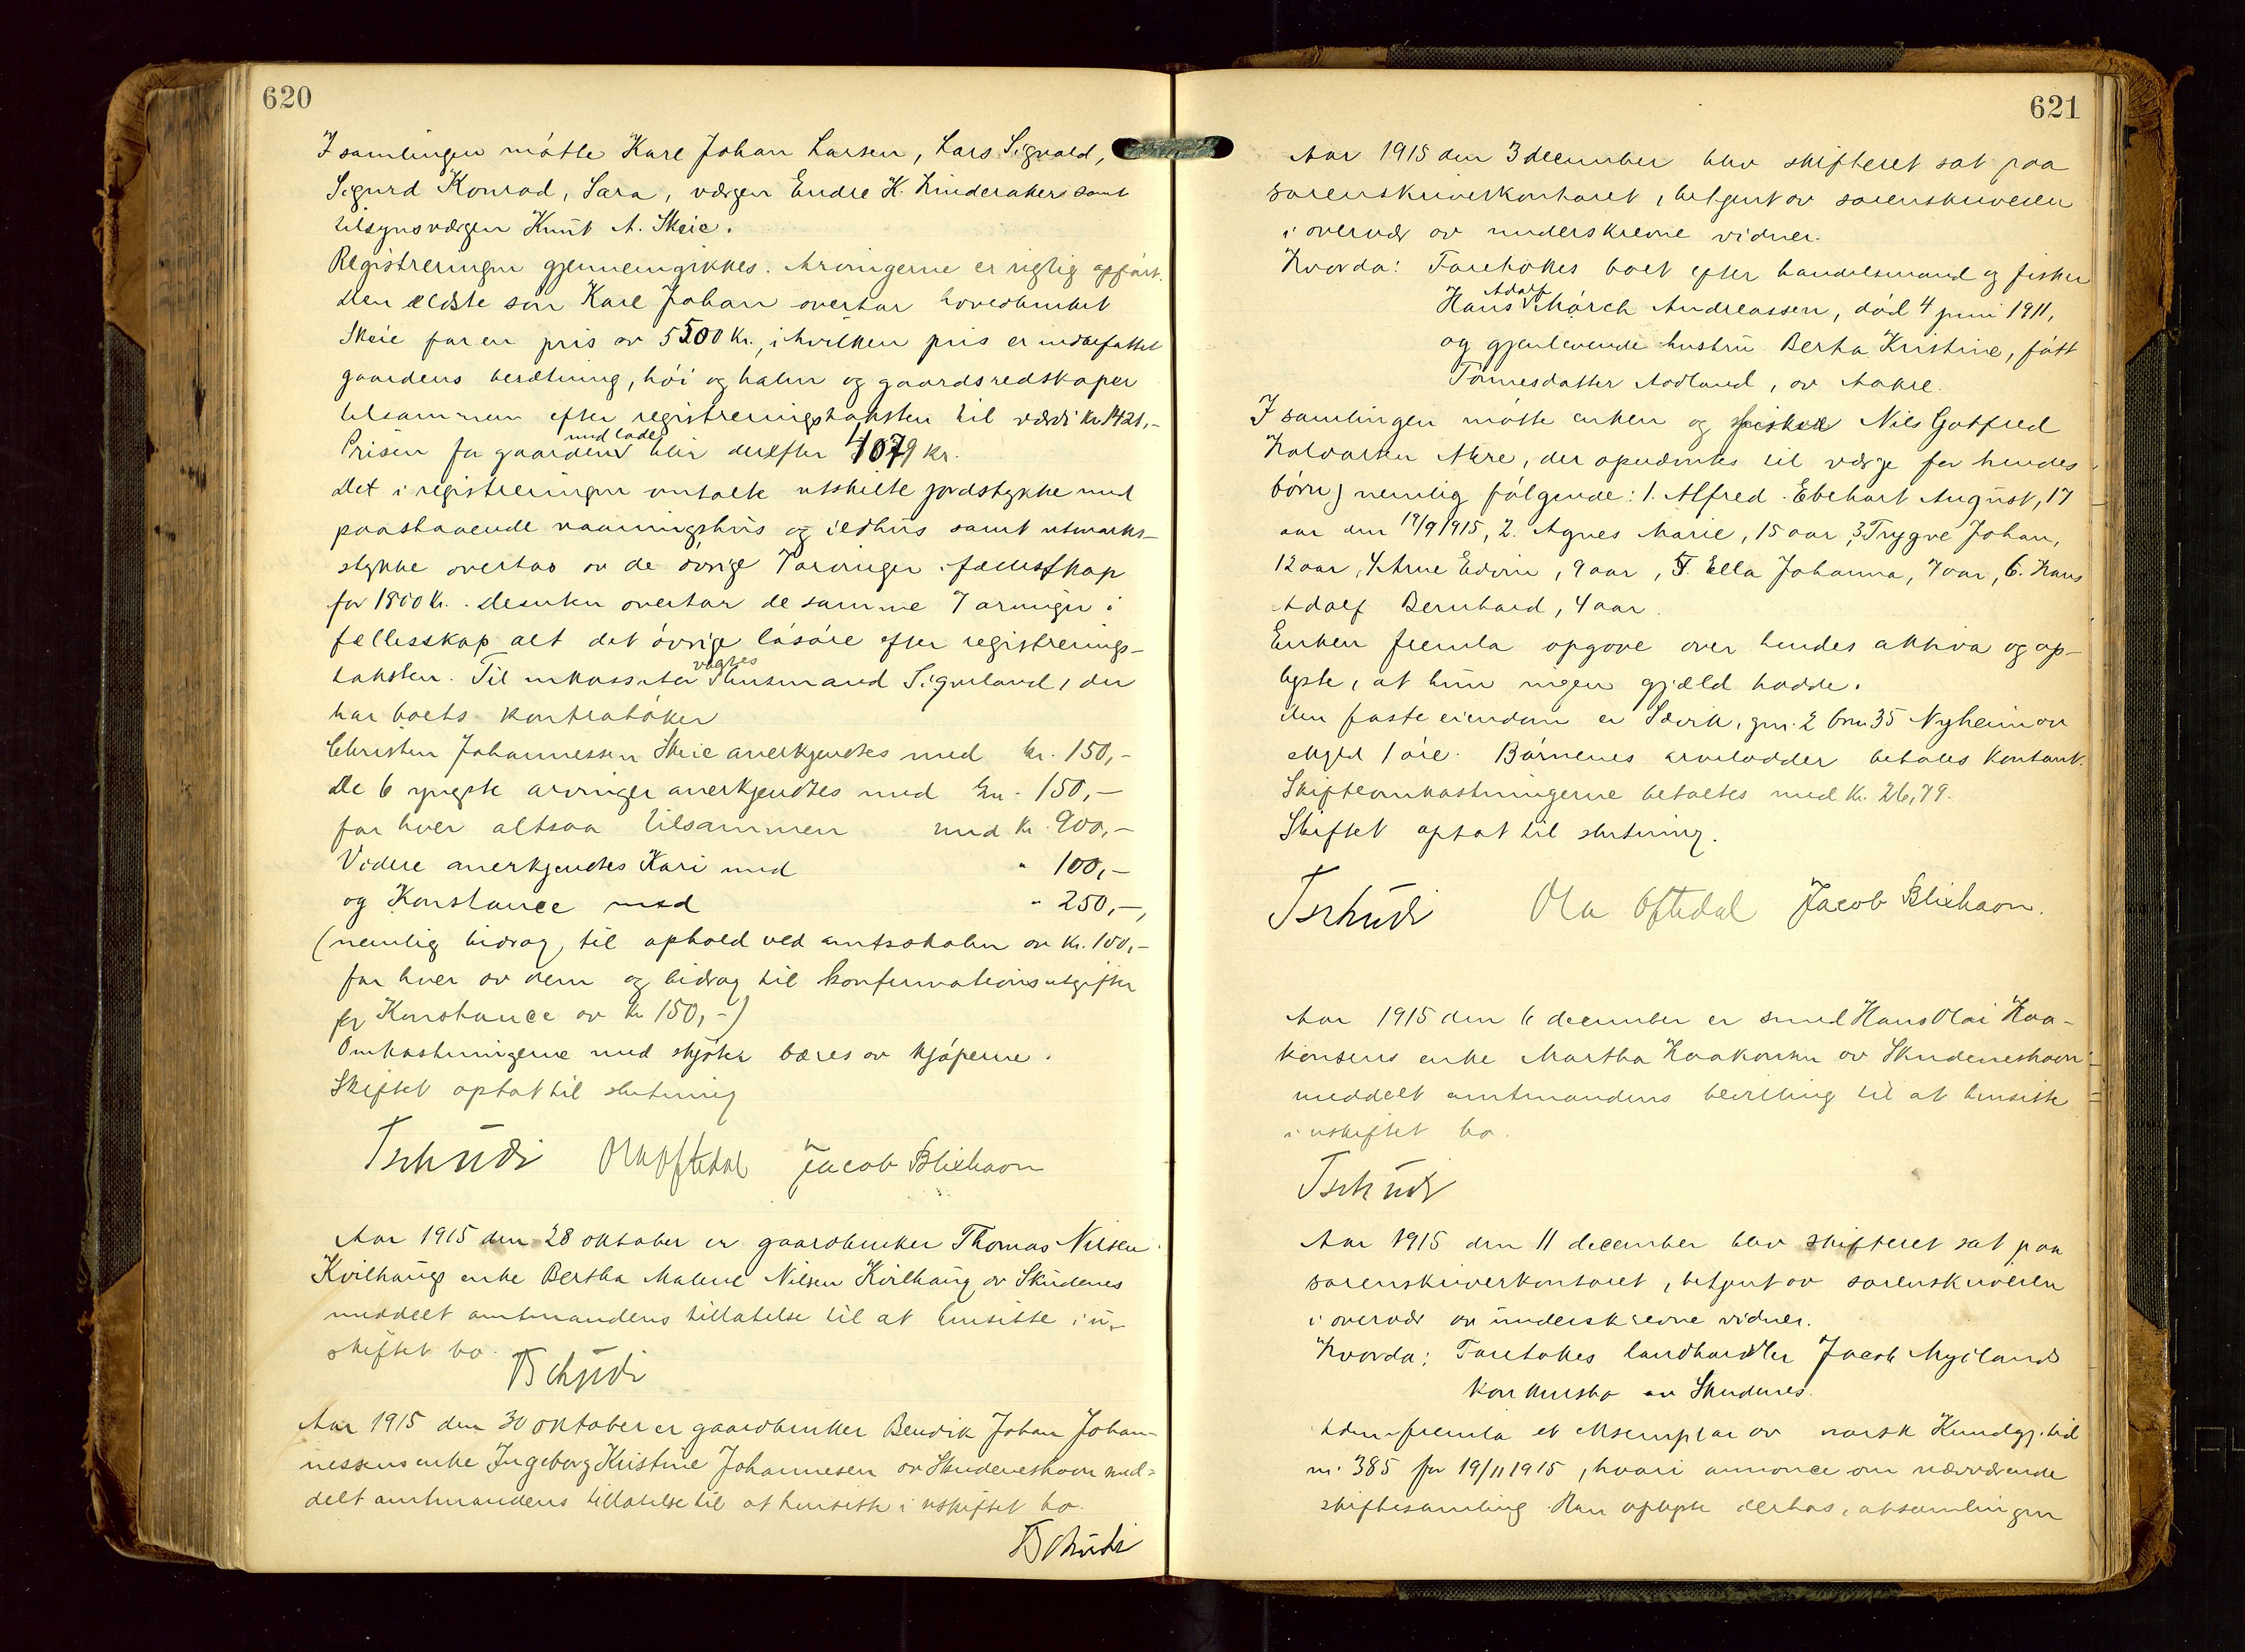 620
I samlingen mötte Karl Johan Larsen, Lars Sigvald,
Sigurd Konrad, Sara, værgen Endre K. Hinderaker samt
tilsynsværgen Knut A. Skeie.
Registreringen gjennemgikkes. Arvingerne er rigtig opført.
Den ældste søn Karl Johan overtar hovedbruket
Skeie for en pris av 5500 Kr., i hvilken pris er indbefattet
gaardens besætning, höi og halm og gaardsredskaper
tilsammen efter registreringstaksten til værdi kr. 1421,-
Prisen for gaarden med lade blir derefter 4079 kr.
Det i registreringen omtalte utskilte jordstykke med
paastaaende vaaningshus og ildhus samt utmarks-
stykke overtas av de övrige 7 arvinger i fællesskap
for 1800 kr. Desuten overtar de samme 7 arvinger i
fellesskap alt det övrige lösöre efter registrerings-
taksten. Til inkassator valgtes lensmand Sigveland, der
har boets kontraböker
Christen Johannessen Skeie anerkjendtes med kr. 150,-
De 6 yngste arvinger anerkjendtes med kr. 150,-
for hver altsaa tilsammen med kr. 900,-
Videre anerkjendtes Kari med " 100,-
og Konstance med " 250,-,
(nemlig bidrag til ophold ved amtsskolen av kr. 100,-
for hver av dem og bidrag til konfirmationsutgifter
for Konstance av kr 150,-)
Omkostningerne med skjöter bæres av kjöperne.
Skiftet optat til slutning
Tschudi Ola Oftedal Jacob Blixhavn
Aar 1915 den 28 oktober er gaardbruker Thomas Nilsen
Kvilhaugs enke Bertha Malene Nilsen Kvilhaug av Skudenes
meddelt amtmandens tillatelse til at hensitte i u-
skiftet bo.
Tschudi
Aar 1915 den 30 oktober er gaardbruker Bendik Johan Johan-
nessens enke Ingeborg Kristine Johannesen av Skudeneshavn med-
delt amtmandens tillatelse til at hensitte i uskiftet bo.
Tschudi
621
Aar 1915 den 3 december blev skifteret sat paa
sorenskriverkontoret, betjent av sorenskriveren
i overvær av underskrevne vidner.
Hvorda: Foretokes boet efter handelsmand og fisker
Hans Adolf Mörch Andreassen, död 4 juni 1911,
og gjenlevende hustru Berta Kristine, født
Tönnesdatter Aodland, av Aakre.
I samlingen mötte enken og fisker Nils Gotfred
Halvorsen Akre, der opnævntes til værge for hendes
börn, nemlig fölgende: 1. Alfred Ebehart August, 17
aar den 19/9 1915, 2. Agnes Marie, 15 aar, 3 Trygve Johan,
12 aar, 4. Arne Edvin, 9 aar, 5. Ella Johanna, 7 aar, 6. Hans
Adolf Bernhard, 4 aar.
Enken fremla opgave over hendes aktiva og op-
lyste, at hun ingen gjæld hadde.
Den faste eiendom er Sævik, gnr. 2 brn. 35 Nyheim av
skyld 1 öre. Börnenes arvelodder betales kontant.
Skifteomkostningerne betaltes med kr. 26,79.
Skiftet optat til slutning.
Tschudi Ola Oftedal Jacob Blixhavn.
Aar 1915 den 6 december er smed Hans Olai Haa-
konsens enke Martha Haakonsen av Skudeneshavn
meddelt amtmandens bevilling til at hensitte
i uskiftet bo.
Tschudi
Aar 1915 den 11 december blev skifteret sat paa
sorenskriverkontoret, betjent av sorenskriveren
i overvær av underskrevne vidner.
Hvorda: Foretokes landhandler Jacob Myklands
konkursbo av Skudenes.
Adm. fremla et eksemplar av norsk Kundgj. tid
nr. 385 for 19/11 1915, hvori annonce om nærværende
skiftesamling. Han oplyste derhos, at samlingen